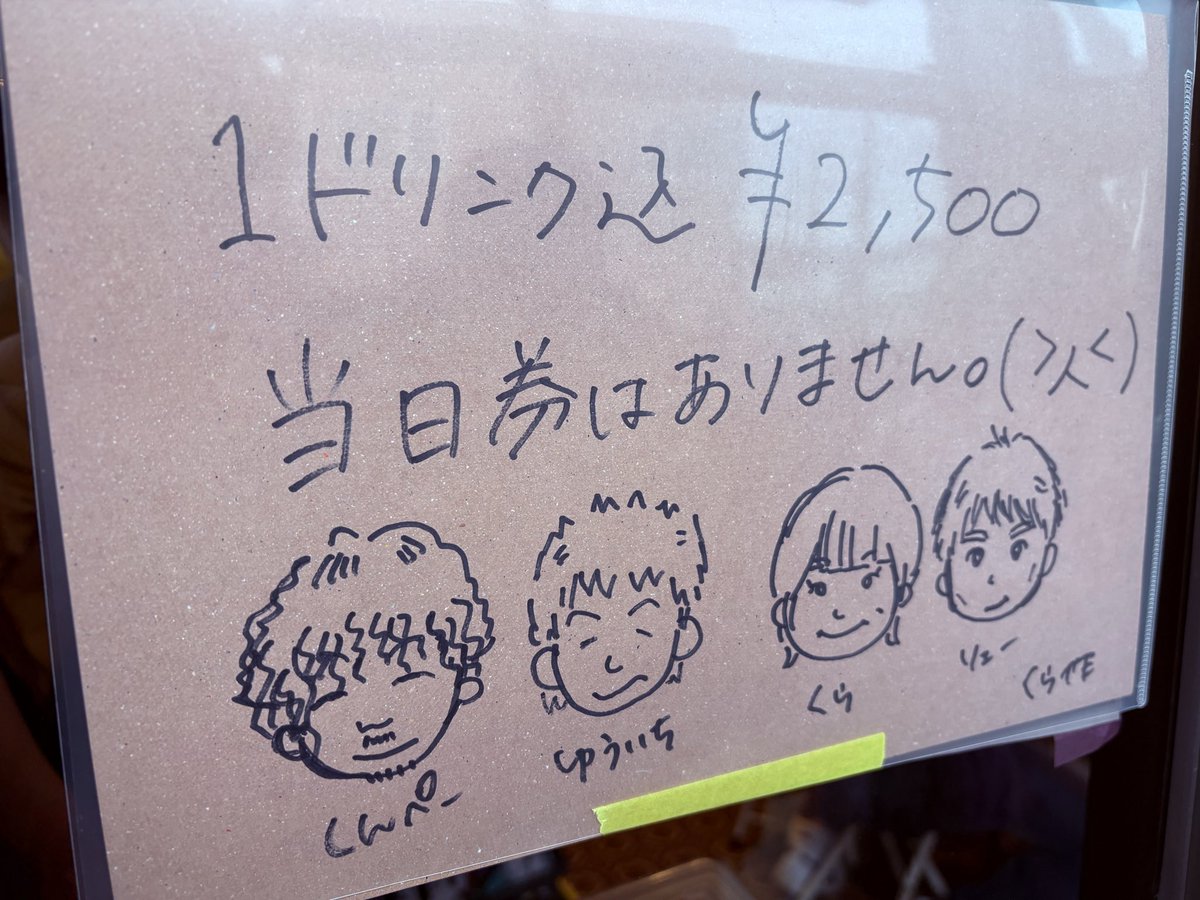 1ドリンク込 ¥2,500
当日券はありません。(>人<)
くんペー
ゆういち
くら
リュー
くら作